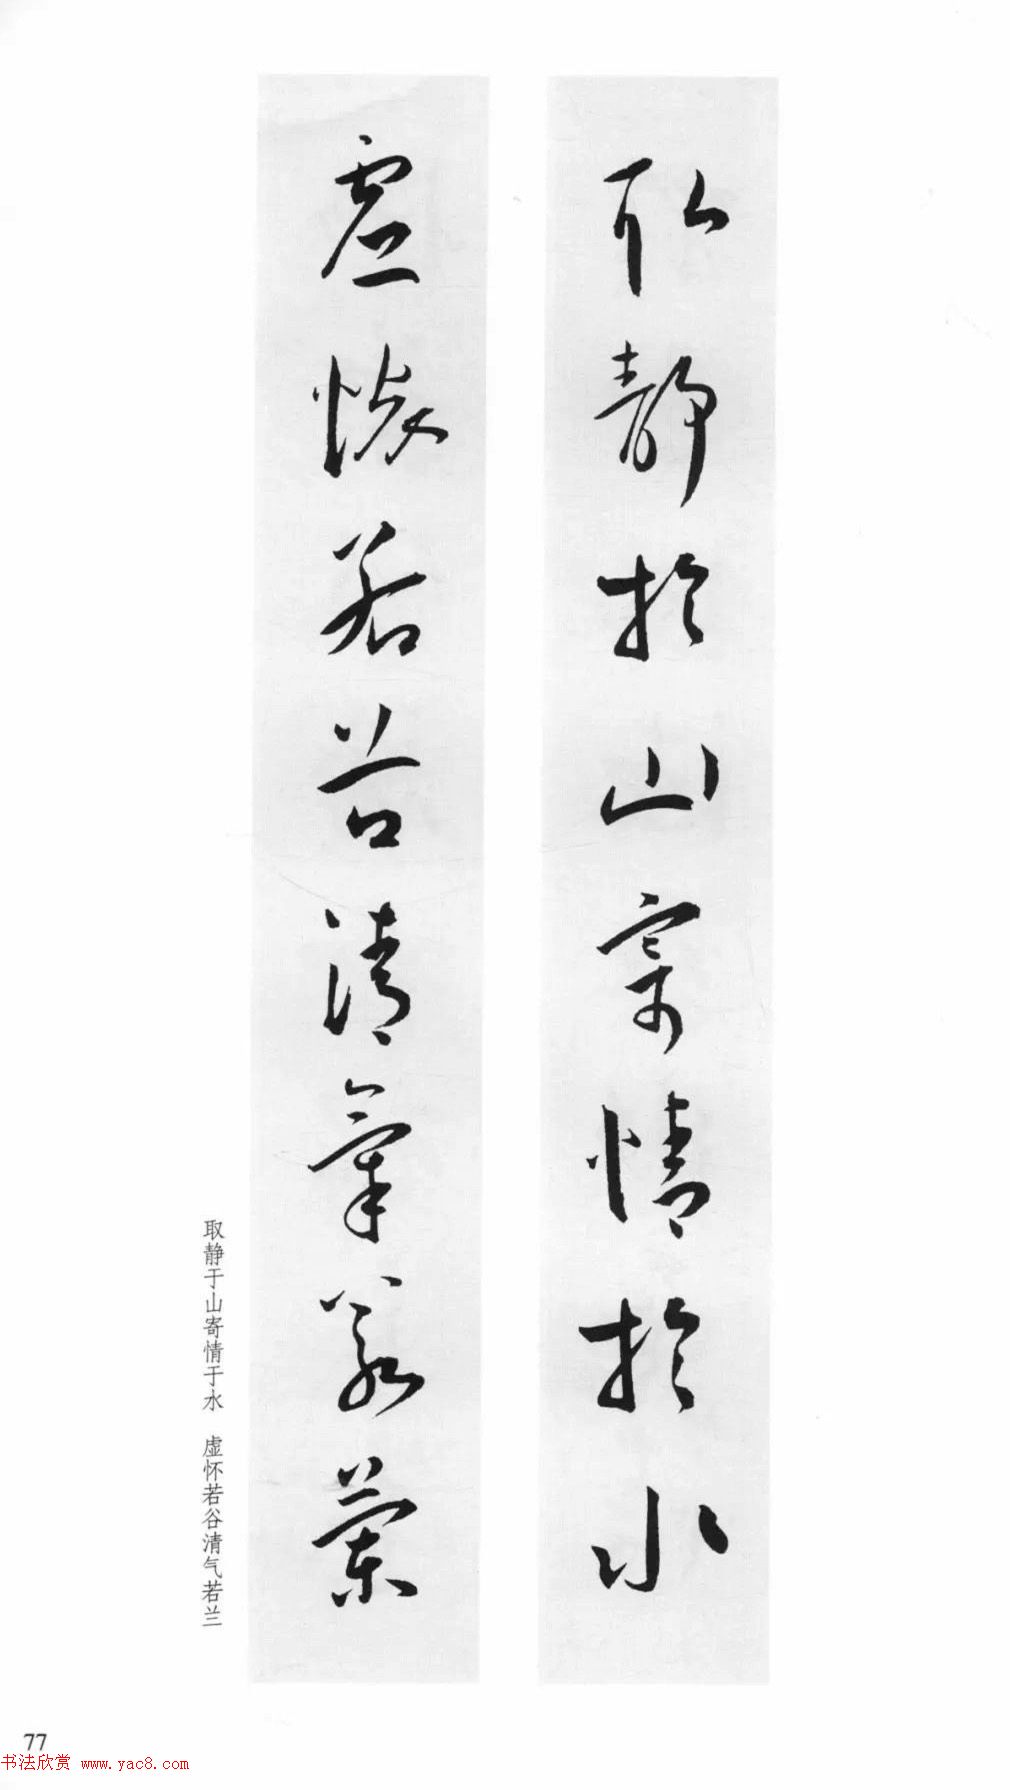 取靜於山寄情於水
虛懷若谷清氣若蘭
取静于山寄情于水 虚怀若谷清气若兰
77
书法欣赏 www.yac8.com